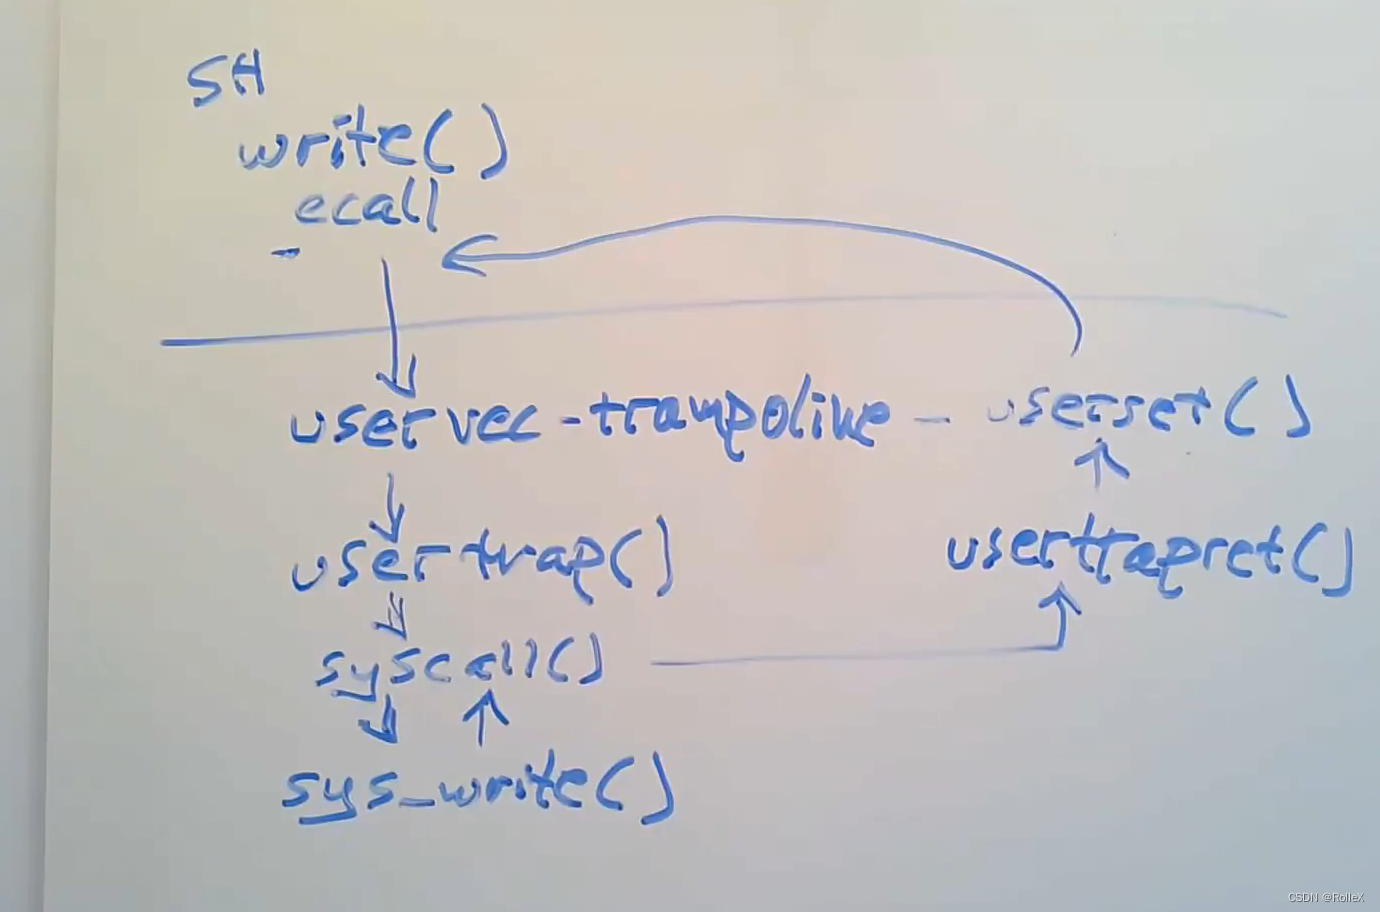 SH
write()
ecall
uservec - trampoline - userret()
usertrap()
usertrapret()
syscall()
sys_write()
CSDN @RolleX